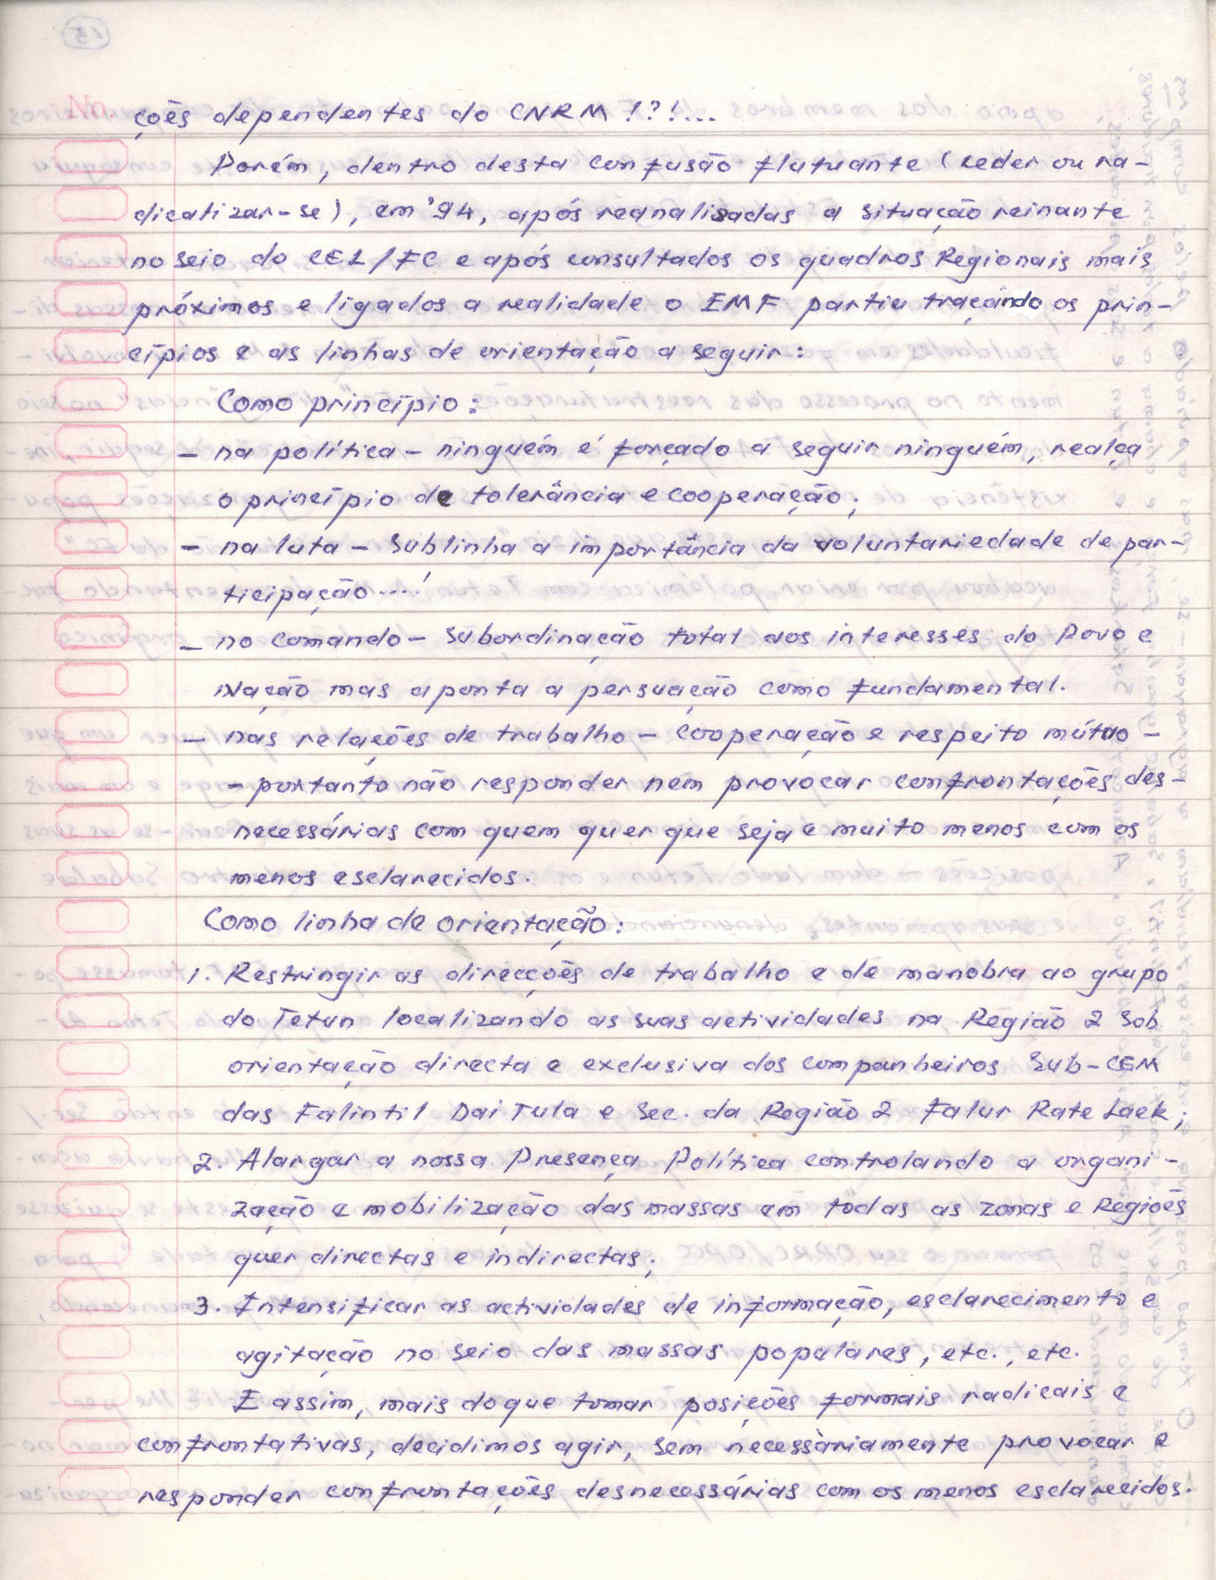 ções dependentes do CNRM!?!...
Porém, dentro desta confusão flutuante (ceder ou ra-
dicalizar-se), em '94, após reanalisadas a situação reinante
no seio do CEL/FC e após consultados os quadros Regionais mais
próximos e ligados a realidade o EMF partiu traçando os prin-
cípios e as linhas de orientação a seguir:
Como princípio:
- na política - ninguém é forçado a seguir ninguém, realça
o princípio de tolerância e cooperação;
- na luta - sublinha a importância da voluntariedade de par-
ticipação....;
- no comando - subordinação total aos interesses do Povo e
Nação mas aponta a persuação como fundamental.
- nas relações de trabalho - cooperação e respeito mútuo -
- portanto não responder nem provocar confrontações des-
necessárias com quem quer que seja e muito menos com os
menos esclarecidos.
Como linha de orientação:
1. Restringir as direcções de trabalho e de manobra ao grupo
do Tetun localizando as suas actividades na Região 2 sob
orientação directa e exclusiva dos companheiros Sub-CEM
das Falintil Dai Tula e Sec. da Região 2 Falur Rate Laek;
2. Alargar a nossa Presença Política controlando a organi-
zação e mobilização das massas em tôdas as zonas e Regiões
quer directas e indirectas;
3. Intensificar as actividades de informação, esclarecimento e
agitação no seio das massas populares, etc., etc.
E assim, mais do que tomar posições formais radicais e
confrontativas, decidimos agir, sem necessàriamente provocar e
responder confrontações desnecessárias com os menos esclarecidos.